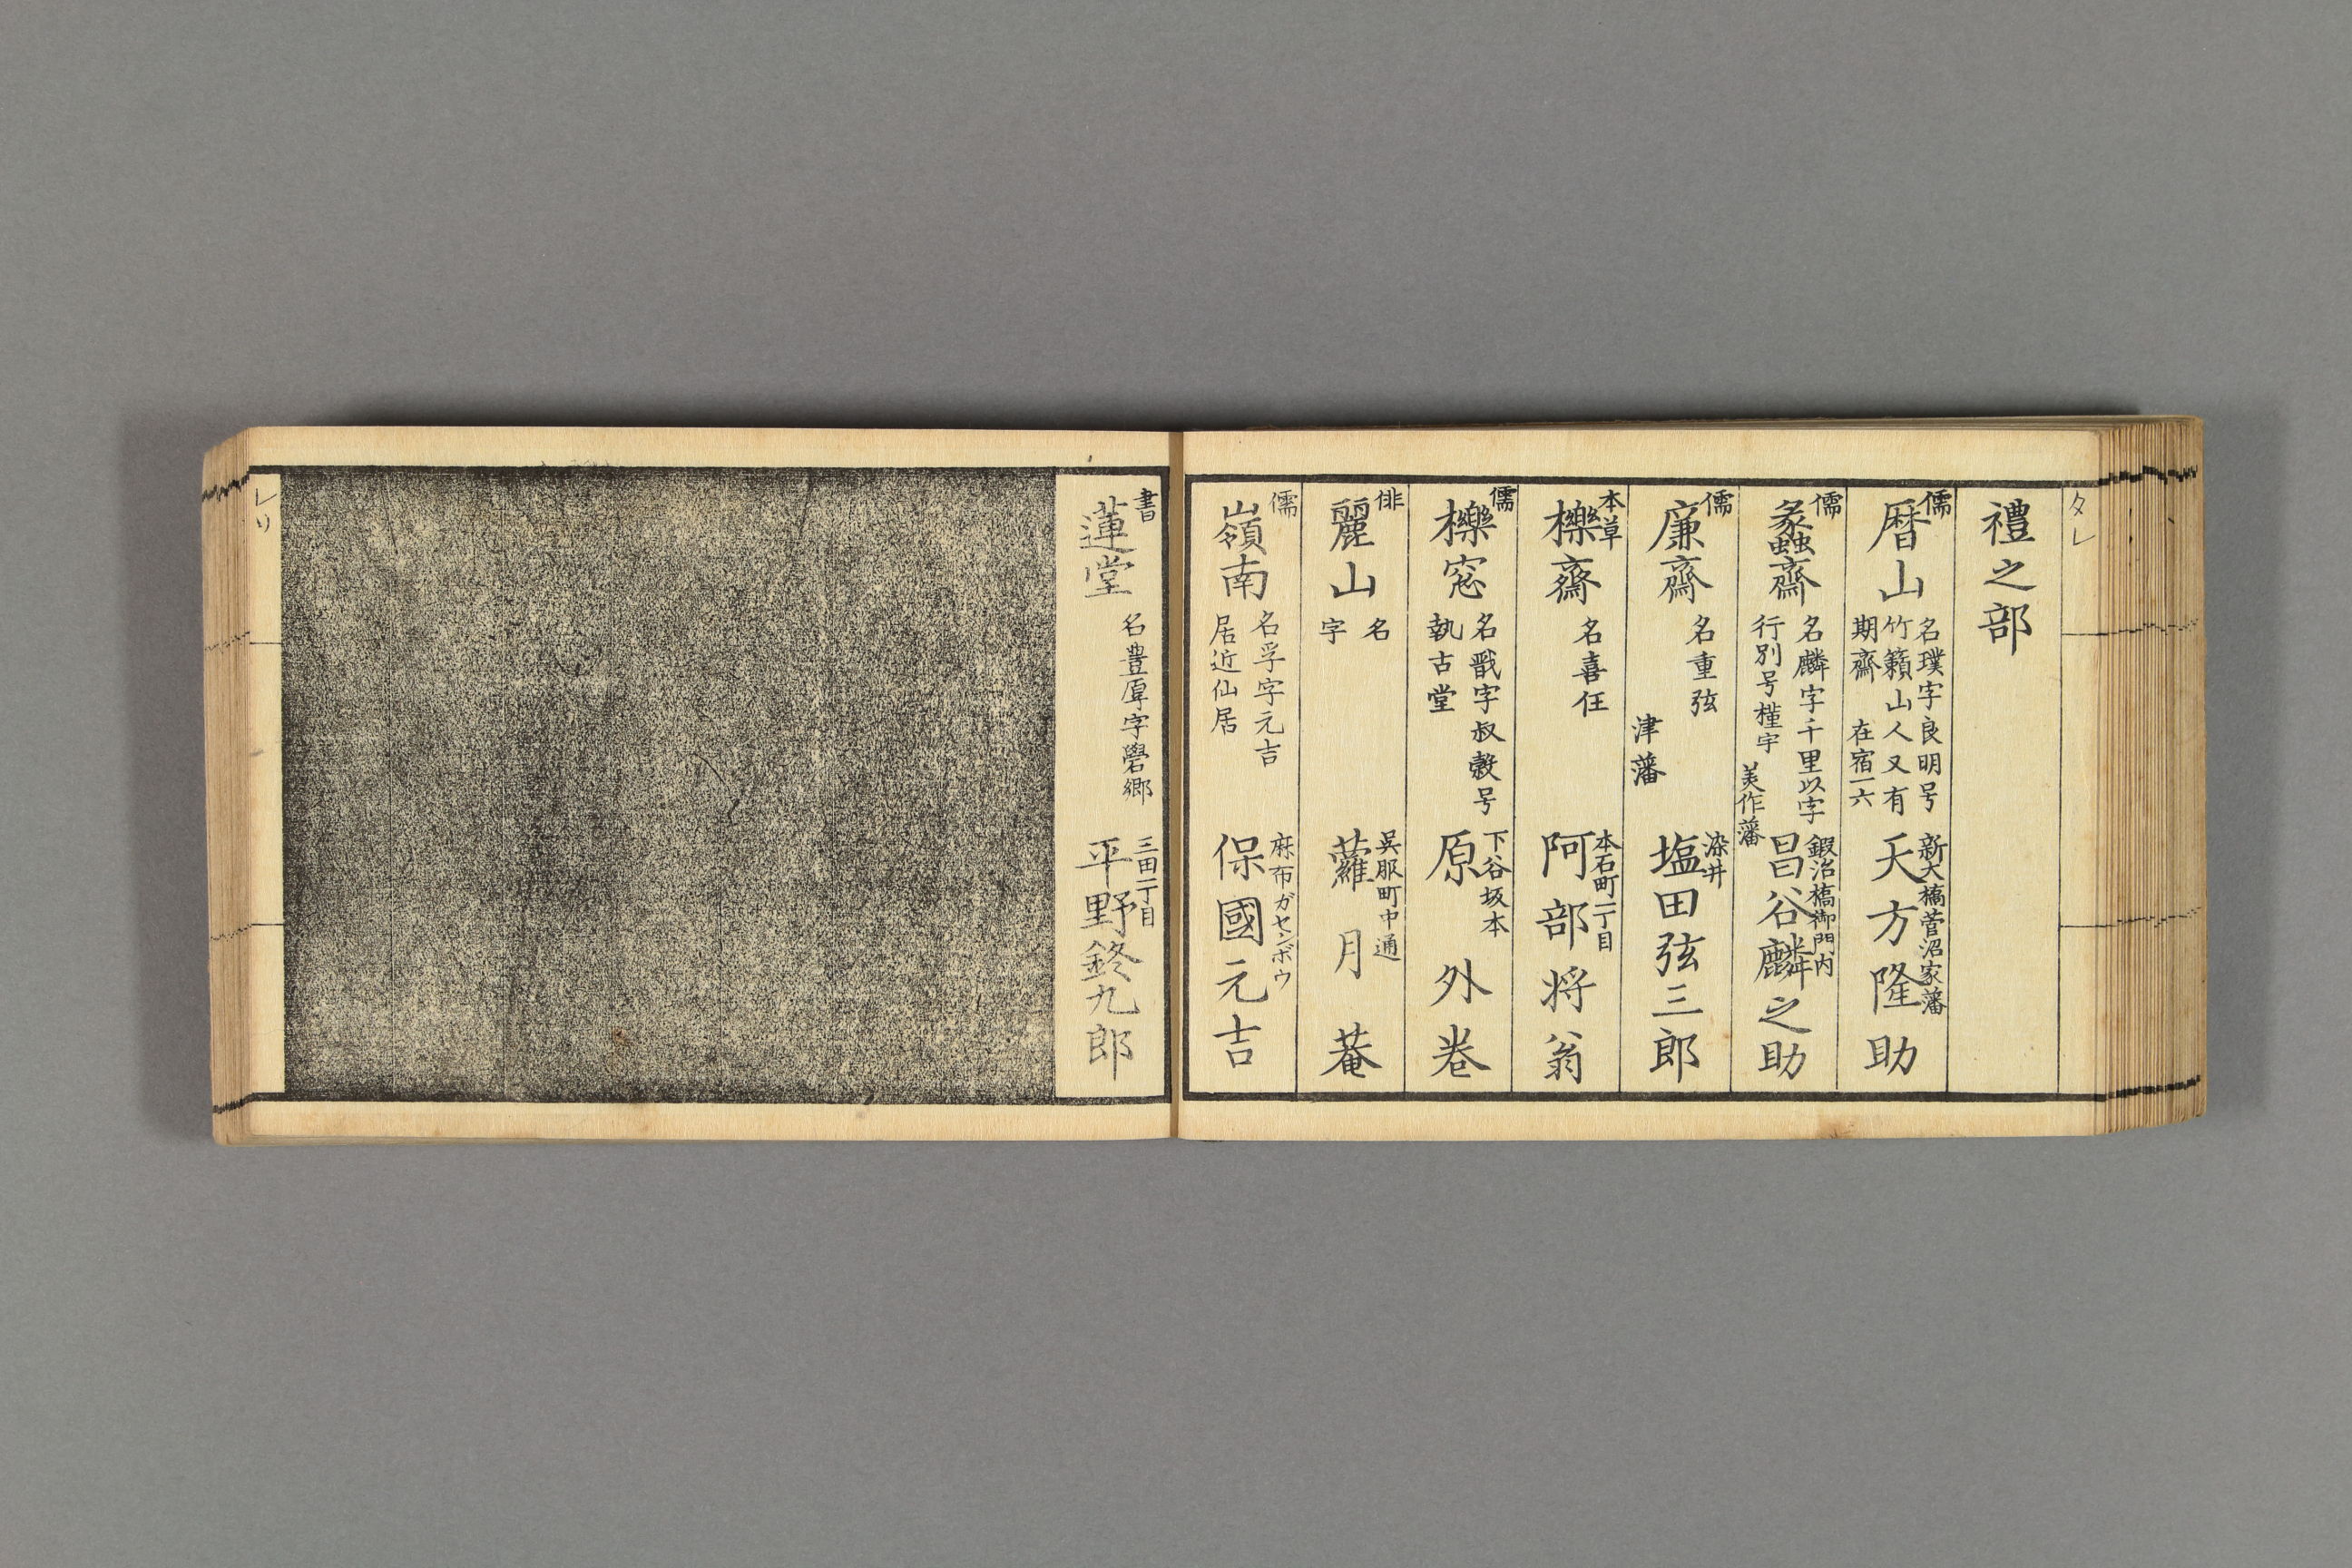 タレ
禮之部
儒
暦山
名璞字良明号
竹籟山人又有
期齋 在宿一六
新大橋菅沼家藩
天方隆助
儒
蠡齋
名麟字千里以字
行別号槿宇
美作藩
鍜冶橋御門内
昌谷麟之助
儒
廉齋
名重弦
津藩
染井
塩田弦三郎
本草
櫟齋
名喜任
本石町二丁目
阿部将翁
儒
櫟窓
名戬字叔穀号
執古堂
下谷坂本
原外巻
俳
麗山
名
字
呉服町中通
蘿月菴
儒
嶺南
名孚字元吉
居近仙居
麻布ガセンボウ
保國元吉
書
蓮堂
名豊厚字礐郷
三田一丁目
平野鉖九郎
レソ